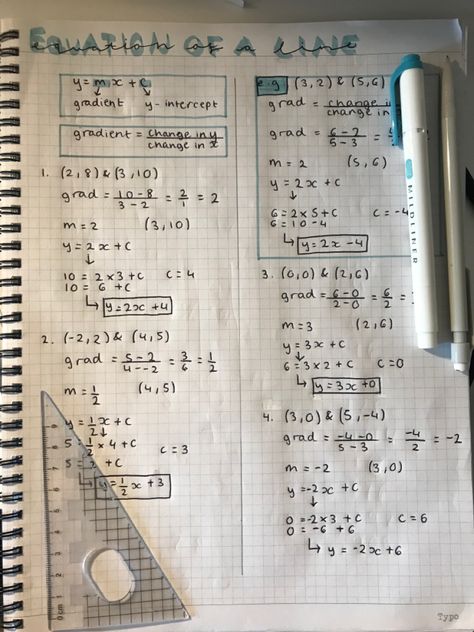 EQUATION OF A LINE
equation of a line
y = mx + c
gradient y - intercept
gradient = change in y
change in x
1. (2,8) & (3,10)
grad = 10-8 = 2 = 2
3-2 1
m = 2 (3,10)
y = 2x + c
10 = 2 × 3 + c c = 4
10 = 6 + c
y = 2x + 4
2. (-2,2) & (4,5)
grad = 5-2 = 3 = 1
4--2 6 2
m = 1/2 (4,5)
y = 1/2 x + c
5 = 1/2 × 4 + c c = 3
5 = + c
y = 1/2 x + 3
e.g (3,2) & (5,6)
grad = change in
change in
grad = 6-2 =
5-3
m = 2 (5,6)
y = 2x + c
6 = 2 × 5 + c c = -4
6 = 10 - 4
y = 2x - 4
3. (0,0) & (2,6)
grad = 6-0 = 6
2-0 2
m = 3 (2,6)
y = 3x + c
6 = 3 × 2 + c c = 0
y = 3x + 0
4. (3,0) & (5,-4)
grad = -4-0 = -4 = -2
5-3 2
m = -2 (3,0)
y = -2x + c
0 = -2 × 3 + c c = 6
0 = -6 + 6
y = -2x + 6
MILDLINER
0 cm 1
Typo